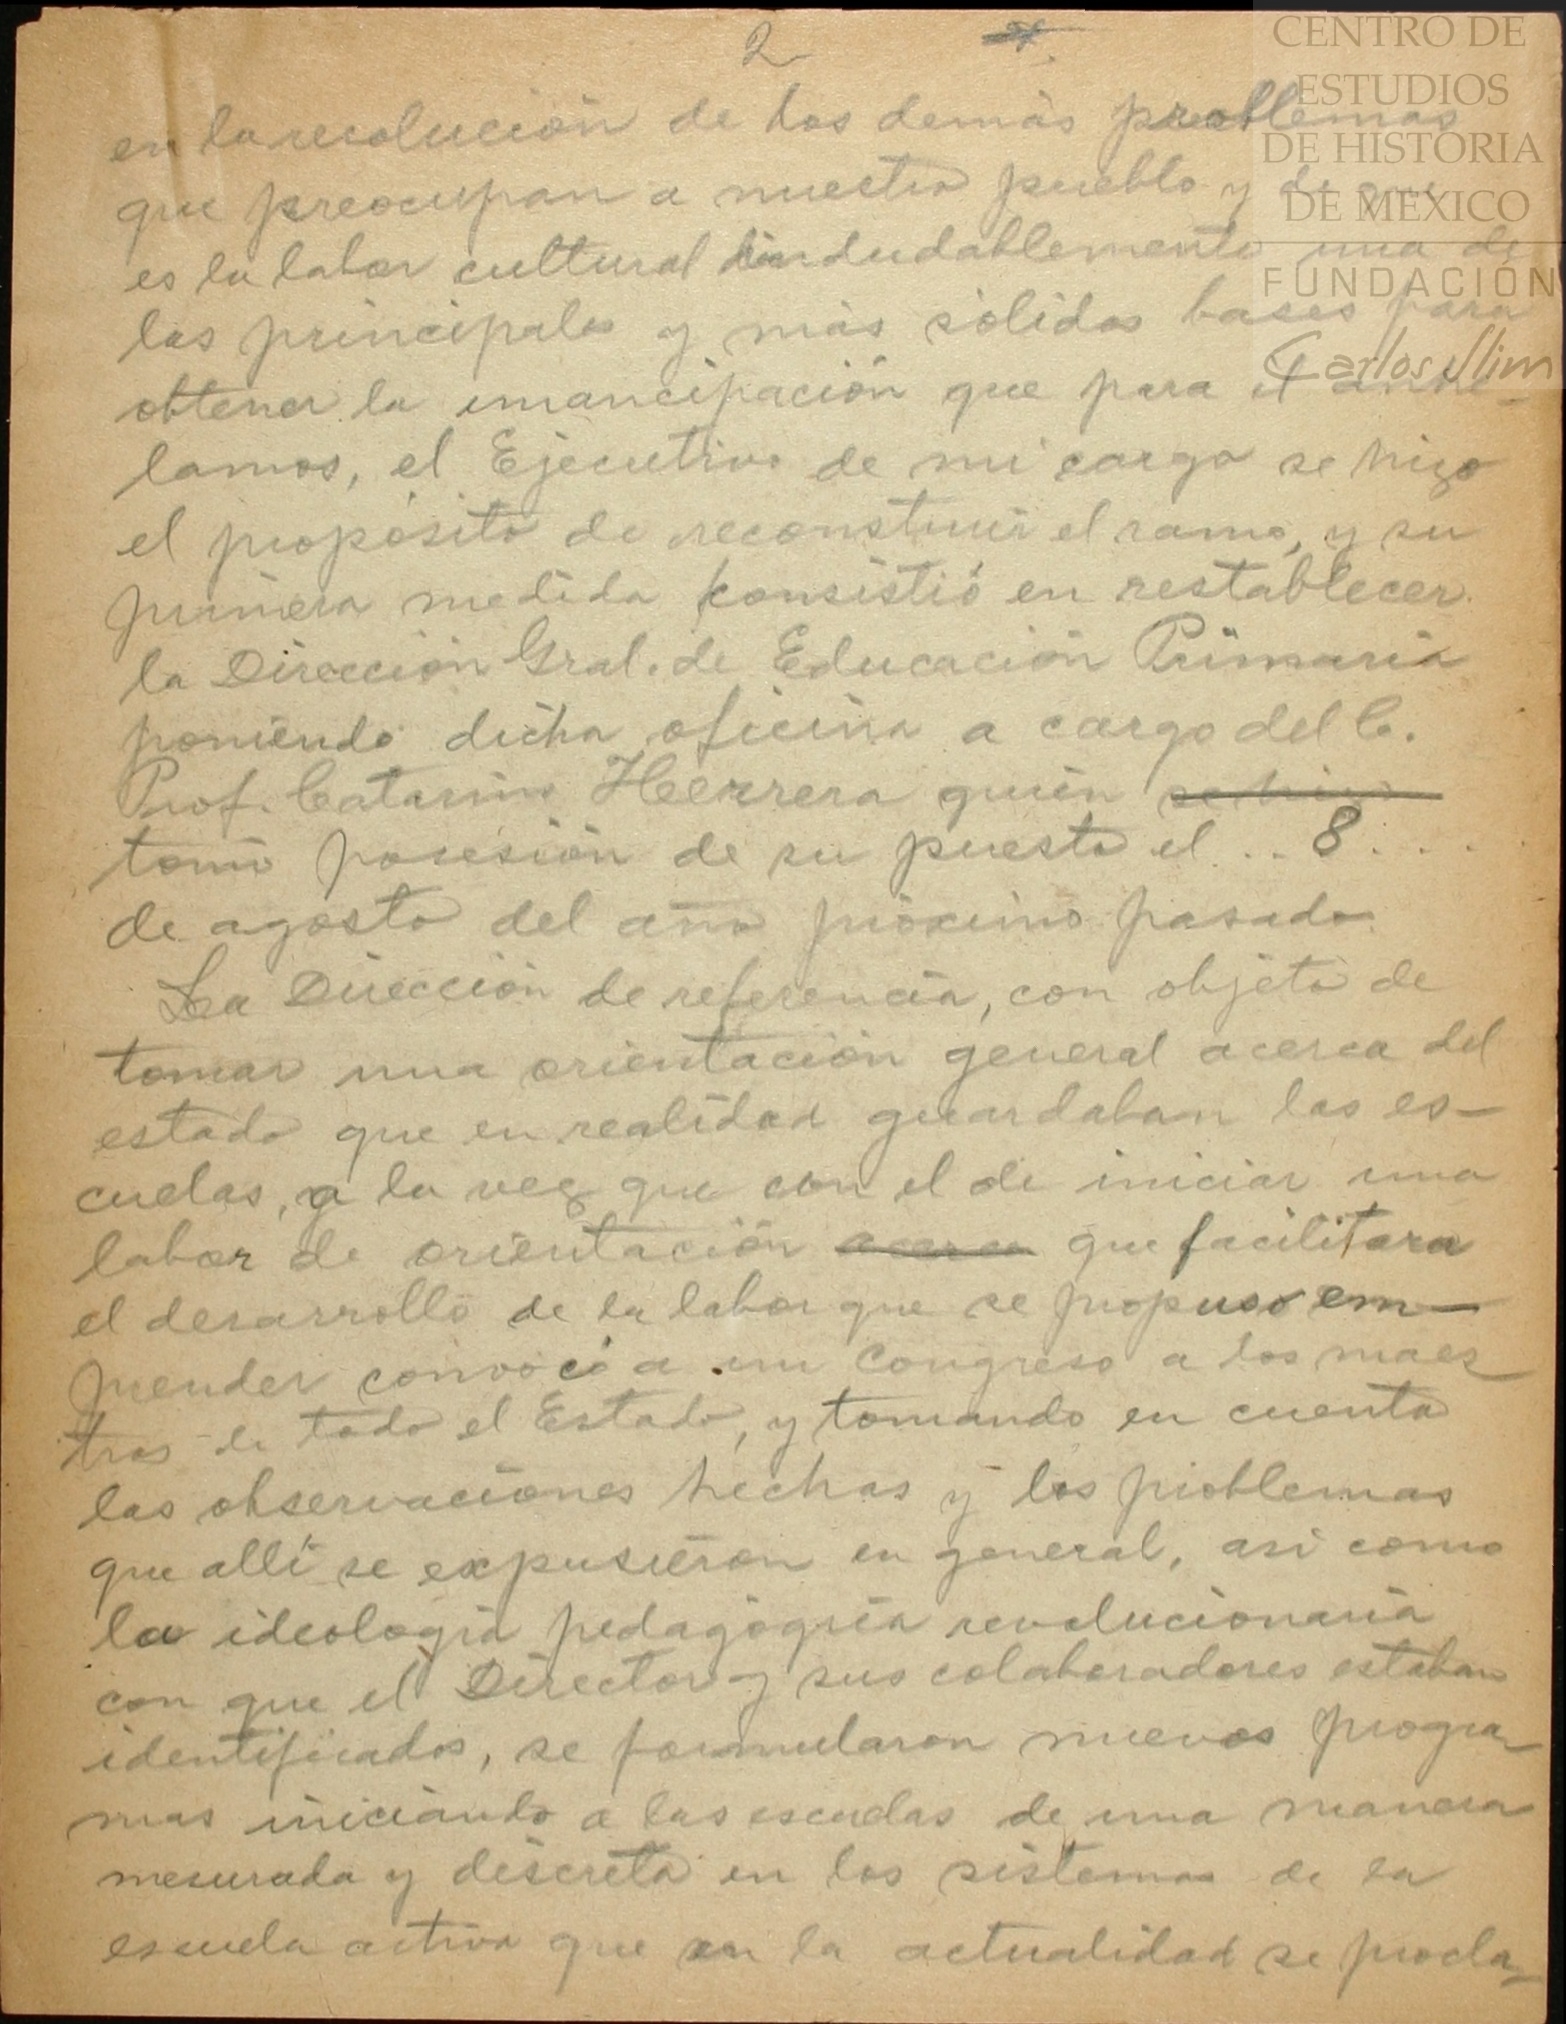 2
en la resolución de los demás problemas
que preocupan a nuestro pueblo y de que
es la labor cultural indudablemente una de
las principales y más sólidas bases para
obtener la emancipación que para él anhe-
lamos, el Ejecutivo de mi cargo se hizo
el propósito de reconstruir el ramo, y su
primera medida consistió en restablecer
la Dirección Gral. de Educación Primaria
poniendo dicha oficina a cargo del C.
Prof. Catarino Herrera quién se hizo
tomó posesión de su puesto el .. 8 ....
de agosto del año próximo pasado.
La Dirección de referencia, con objeto de
tomar una orientación general acerca del
estado que en realidad guardaban las es-
cuelas, a la vez que con el de iniciar una
labor de orientación acerca que facilitara
el desarrollo de la labor que se propuso em-
prender convocó a un Congreso a los maes
tros de todo el Estado, y tomando en cuenta
las observaciones hechas y los problemas
que allí se expusieron en general, así como
la ideología pedagógica revolucionaria
con que el Director y sus colaboradores estaban
identificados, se formularon nuevos progra-
mas iniciando a las escuelas de una manera
mesurada y discreta en los sistemas de la
escuela activa que en la actualidad se procla-
CENTRO DE
ESTUDIOS
DE HISTORIA
DE MEXICO
FUNDACIÓN
Carlos Slim